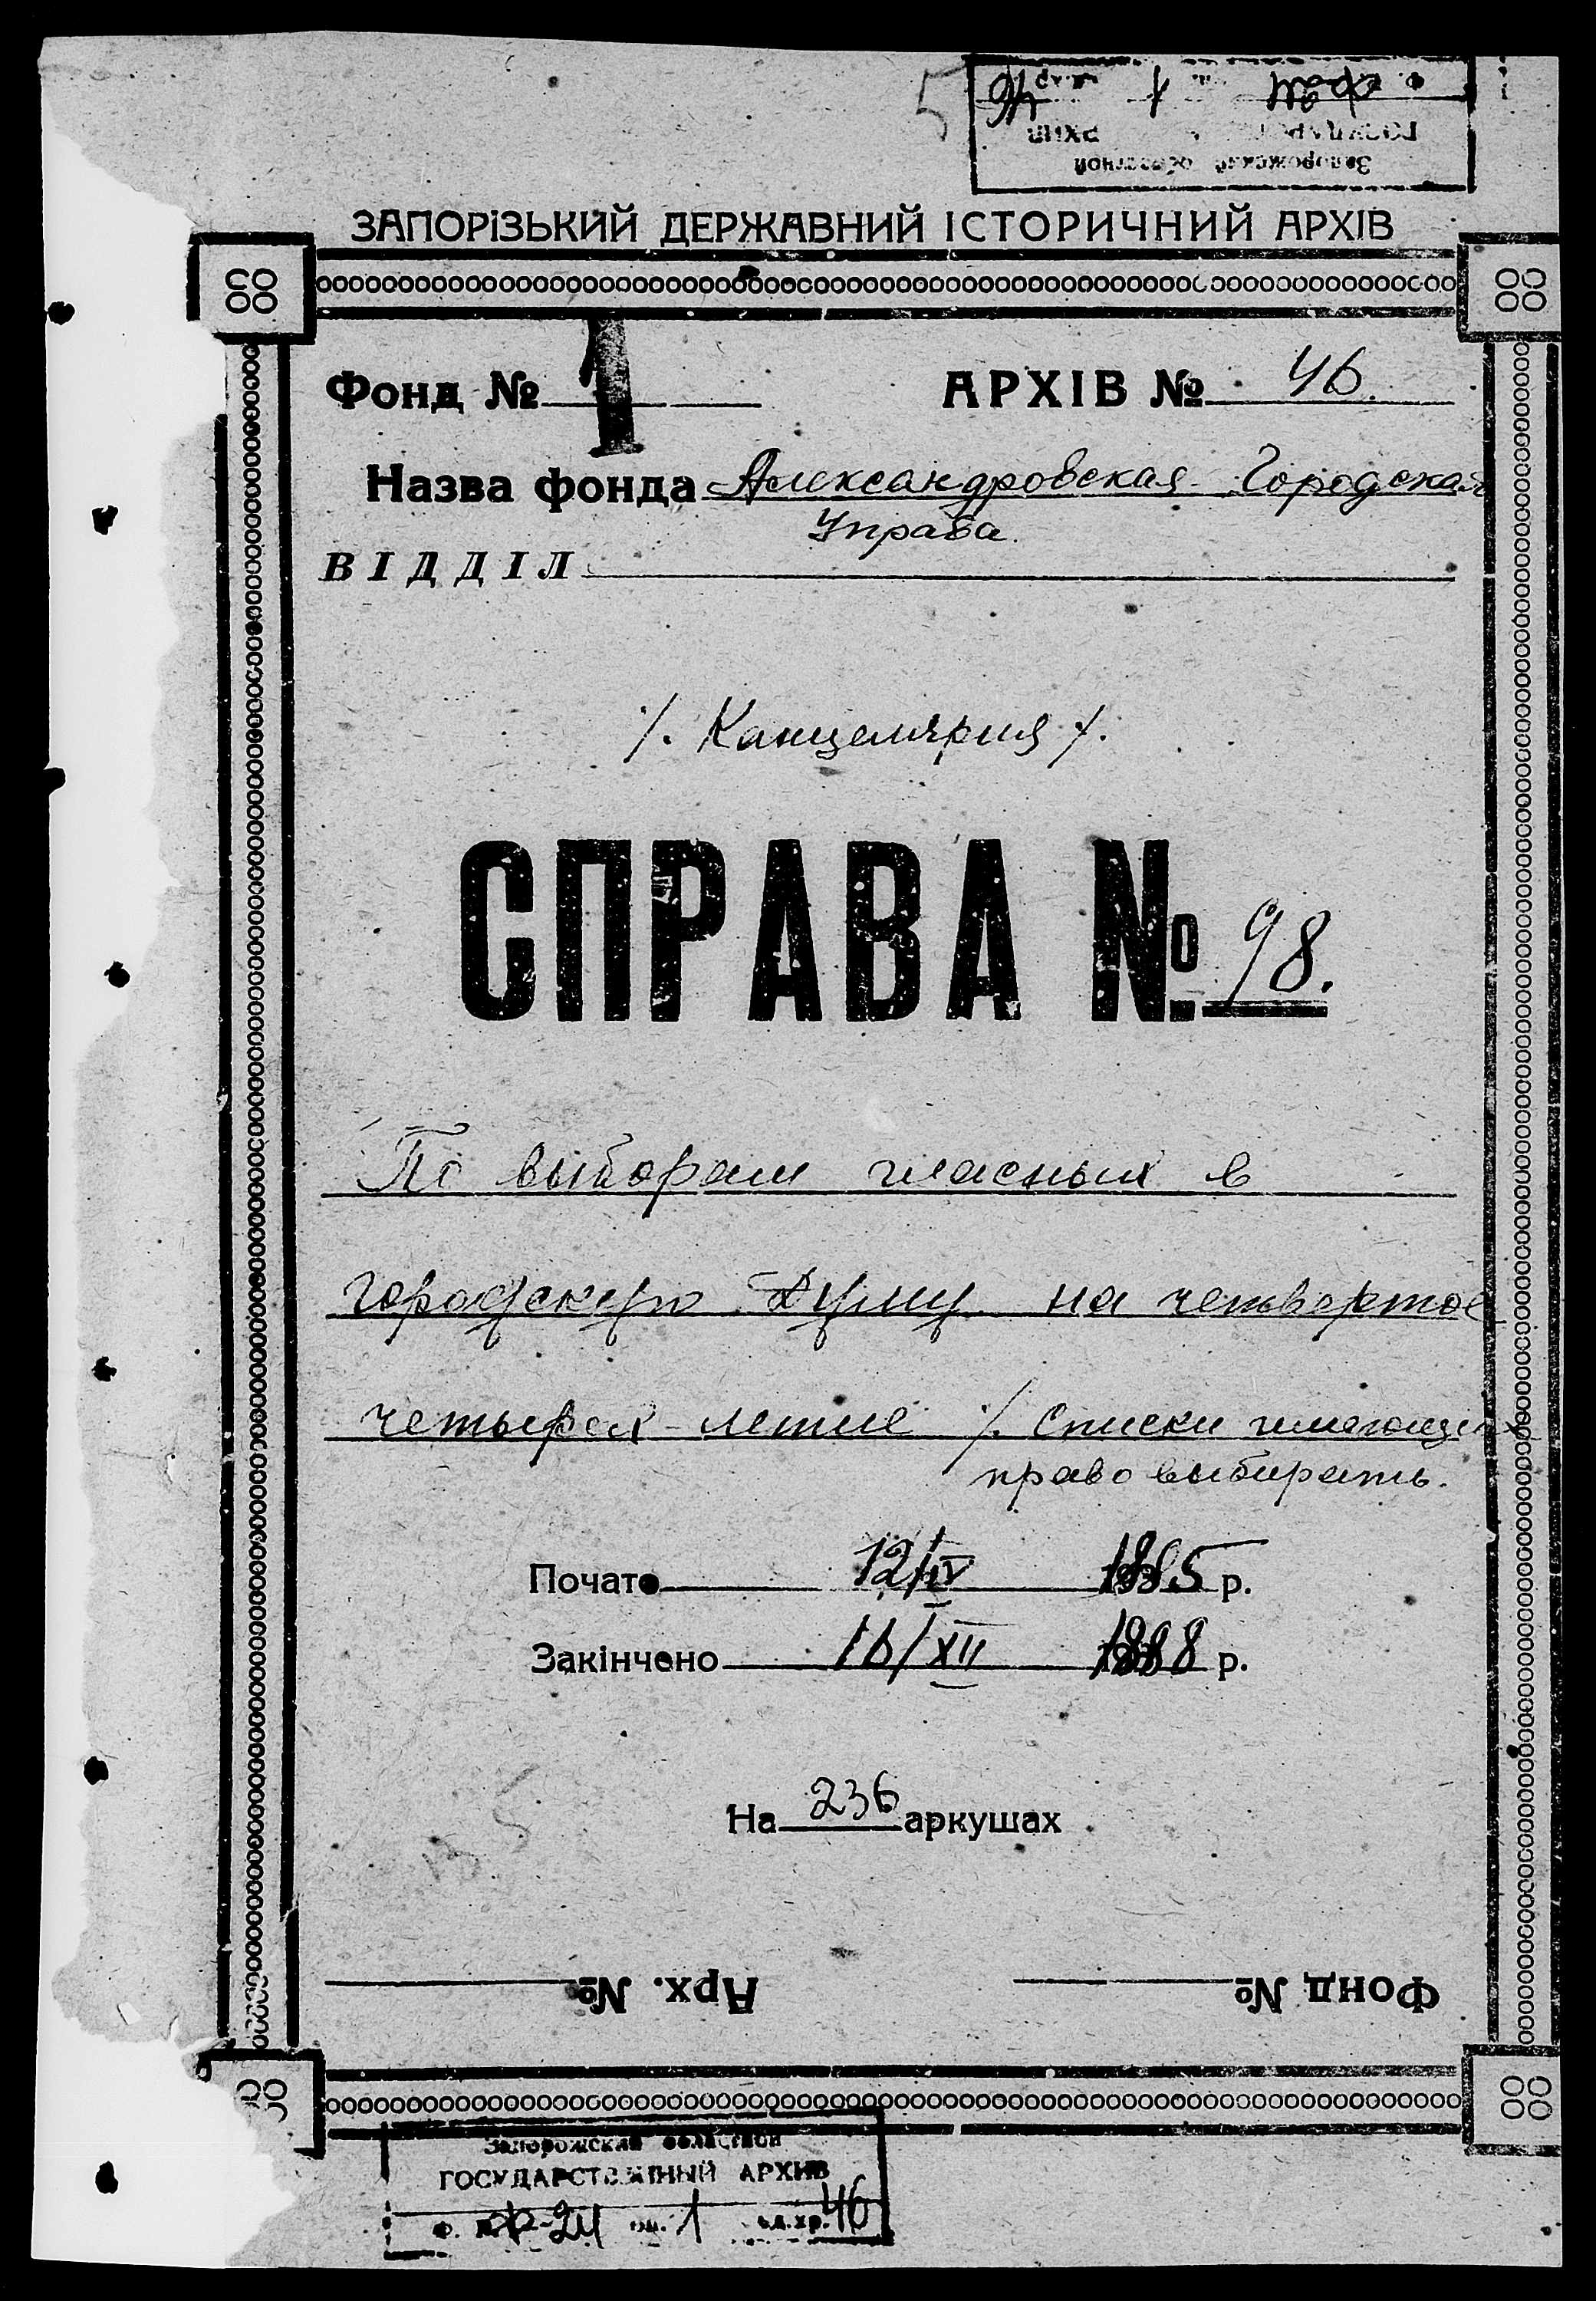 5
Запорожский областной
ГОСУДАРСТВЕННЫЙ АРХИВ
Ф. 24 оп. 1 ед.хр. 46
ЗАПОРІЗЬКИЙ ДЕРЖАВНИЙ ІСТОРИЧНИЙ АРХІВ
Фонд № 1 АРХІВ № 46.
Назва фонда Александровская Городская
Управа.
ВІДДІЛ
/. Канцелярия /.
СПРАВА № 98.
По выборам гласных в
городскую Думу на четвертое
четырех-летие /. Списки имеющих
право выбирать.
Почато 12/IV 1885 р.
Закінчено 16/XII 1888 р.
На 236 аркушах
Фонд № Арх. №
Запорожский областной
ГОСУДАРСТВЕННЫЙ АРХИВ
Ф. Ф-24 оп. 1 ед.хр. 46